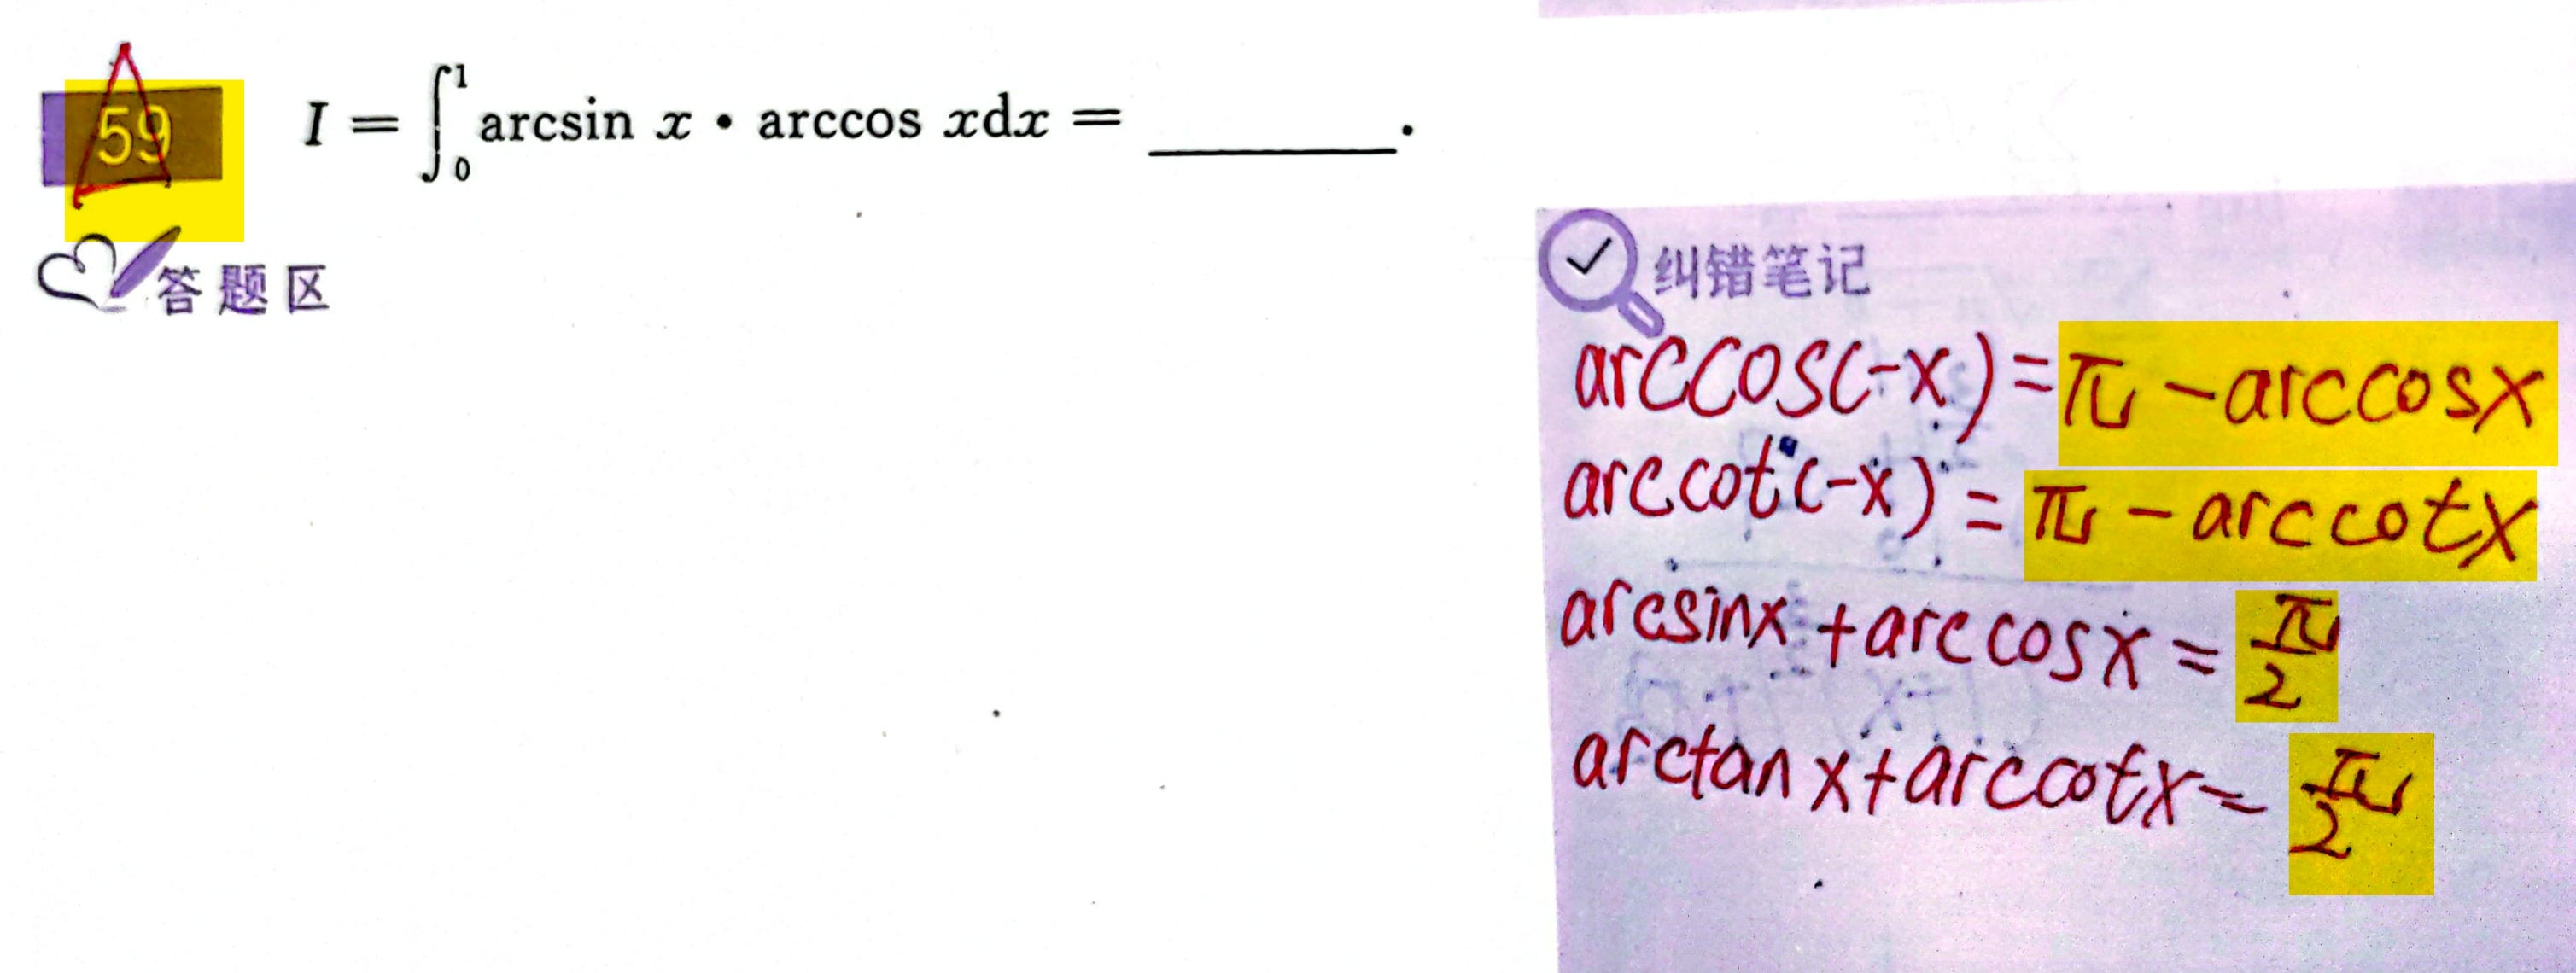 59 I = ∫₀¹ arcsin x · arccos xdx = ________.
答题区
纠错笔记
arccos(-x) = π - arccosx
arccot(-x) = π - arccotx
arcsinx + arccosx = π/2
arctanx + arccotx = π/2